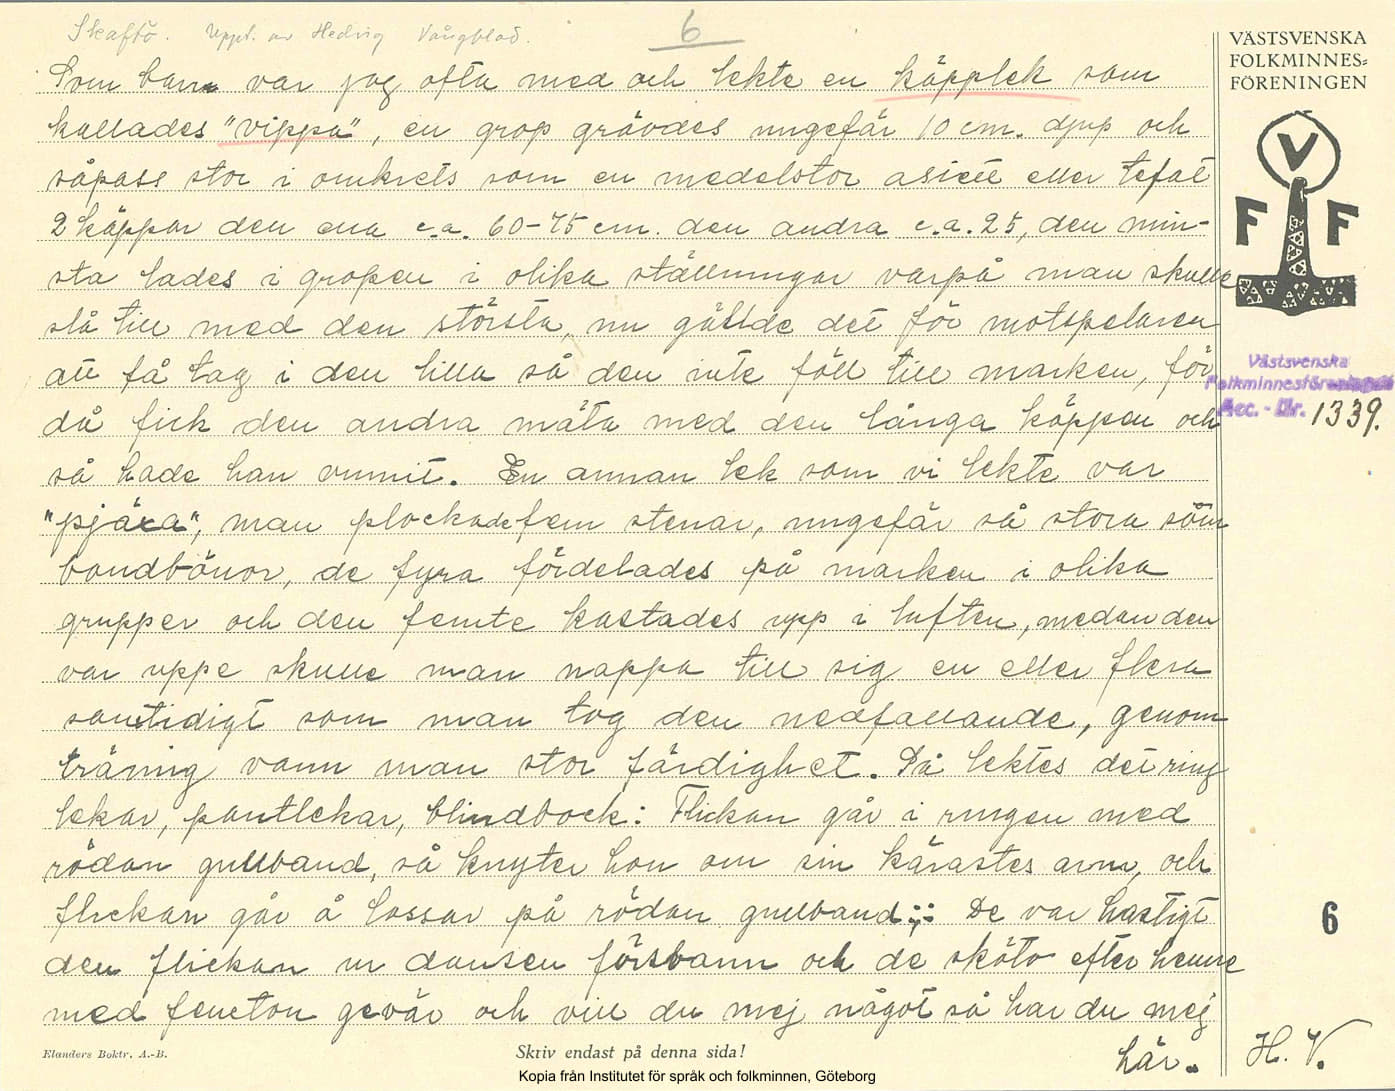 Skaftö. Uppt. av Hedvig Vångblad.
6
VÄSTSVENSKA
FOLKMINNES=
FÖRENINGEN
Som barn var jag ofta med och lekte en käpplek som
kallades "vippa", en grop grävdes ungefär 10 cm. djup och
såpass stor i omkrets som en medelstor asiett eller tefat
2 käppar den ena c.a. 60-75 cm. den andra c.a. 25, den min-
sta lades i gropen i olika ställningar varpå man skulle
slå till med den största, nu gällde det för motspelaren
att få tag i den lilla så den inte föll till marken, för
då fick den andra mäta med den långa käppen och
så hade han vunnit. En annan lek som vi lekte var
"pjäxa", man plockade fem stenar, ungefär så stora som
bondbönor, de fyra fördelades på marken i olika
grupper och den femte kastades upp i luften, medan den
var uppe skulle man nappa till sig en eller flera
samtidigt som man tog den nedfallande, genom
träning vann man stor färdighet. Så lektes det ring
lekar, pantlekar, blindbock: Flickan går i ringen med
rödan gullband, så knyter hon om sin kärastes arm, och
flickan går å lossar på rödan gullband De var hastigt
den flickan ur dansen försvann och de sköto efter henne
med femton gevär och vill du mej något så har du mej
här.
V
F F
Västsvenska
Folkminnesföreningen
Acc. - Nr. 1339.
6
H. V.
Elanders Boktr. A.-B.
Skriv endast på denna sida!
Kopia från Institutet för språk och folkminnen, Göteborg